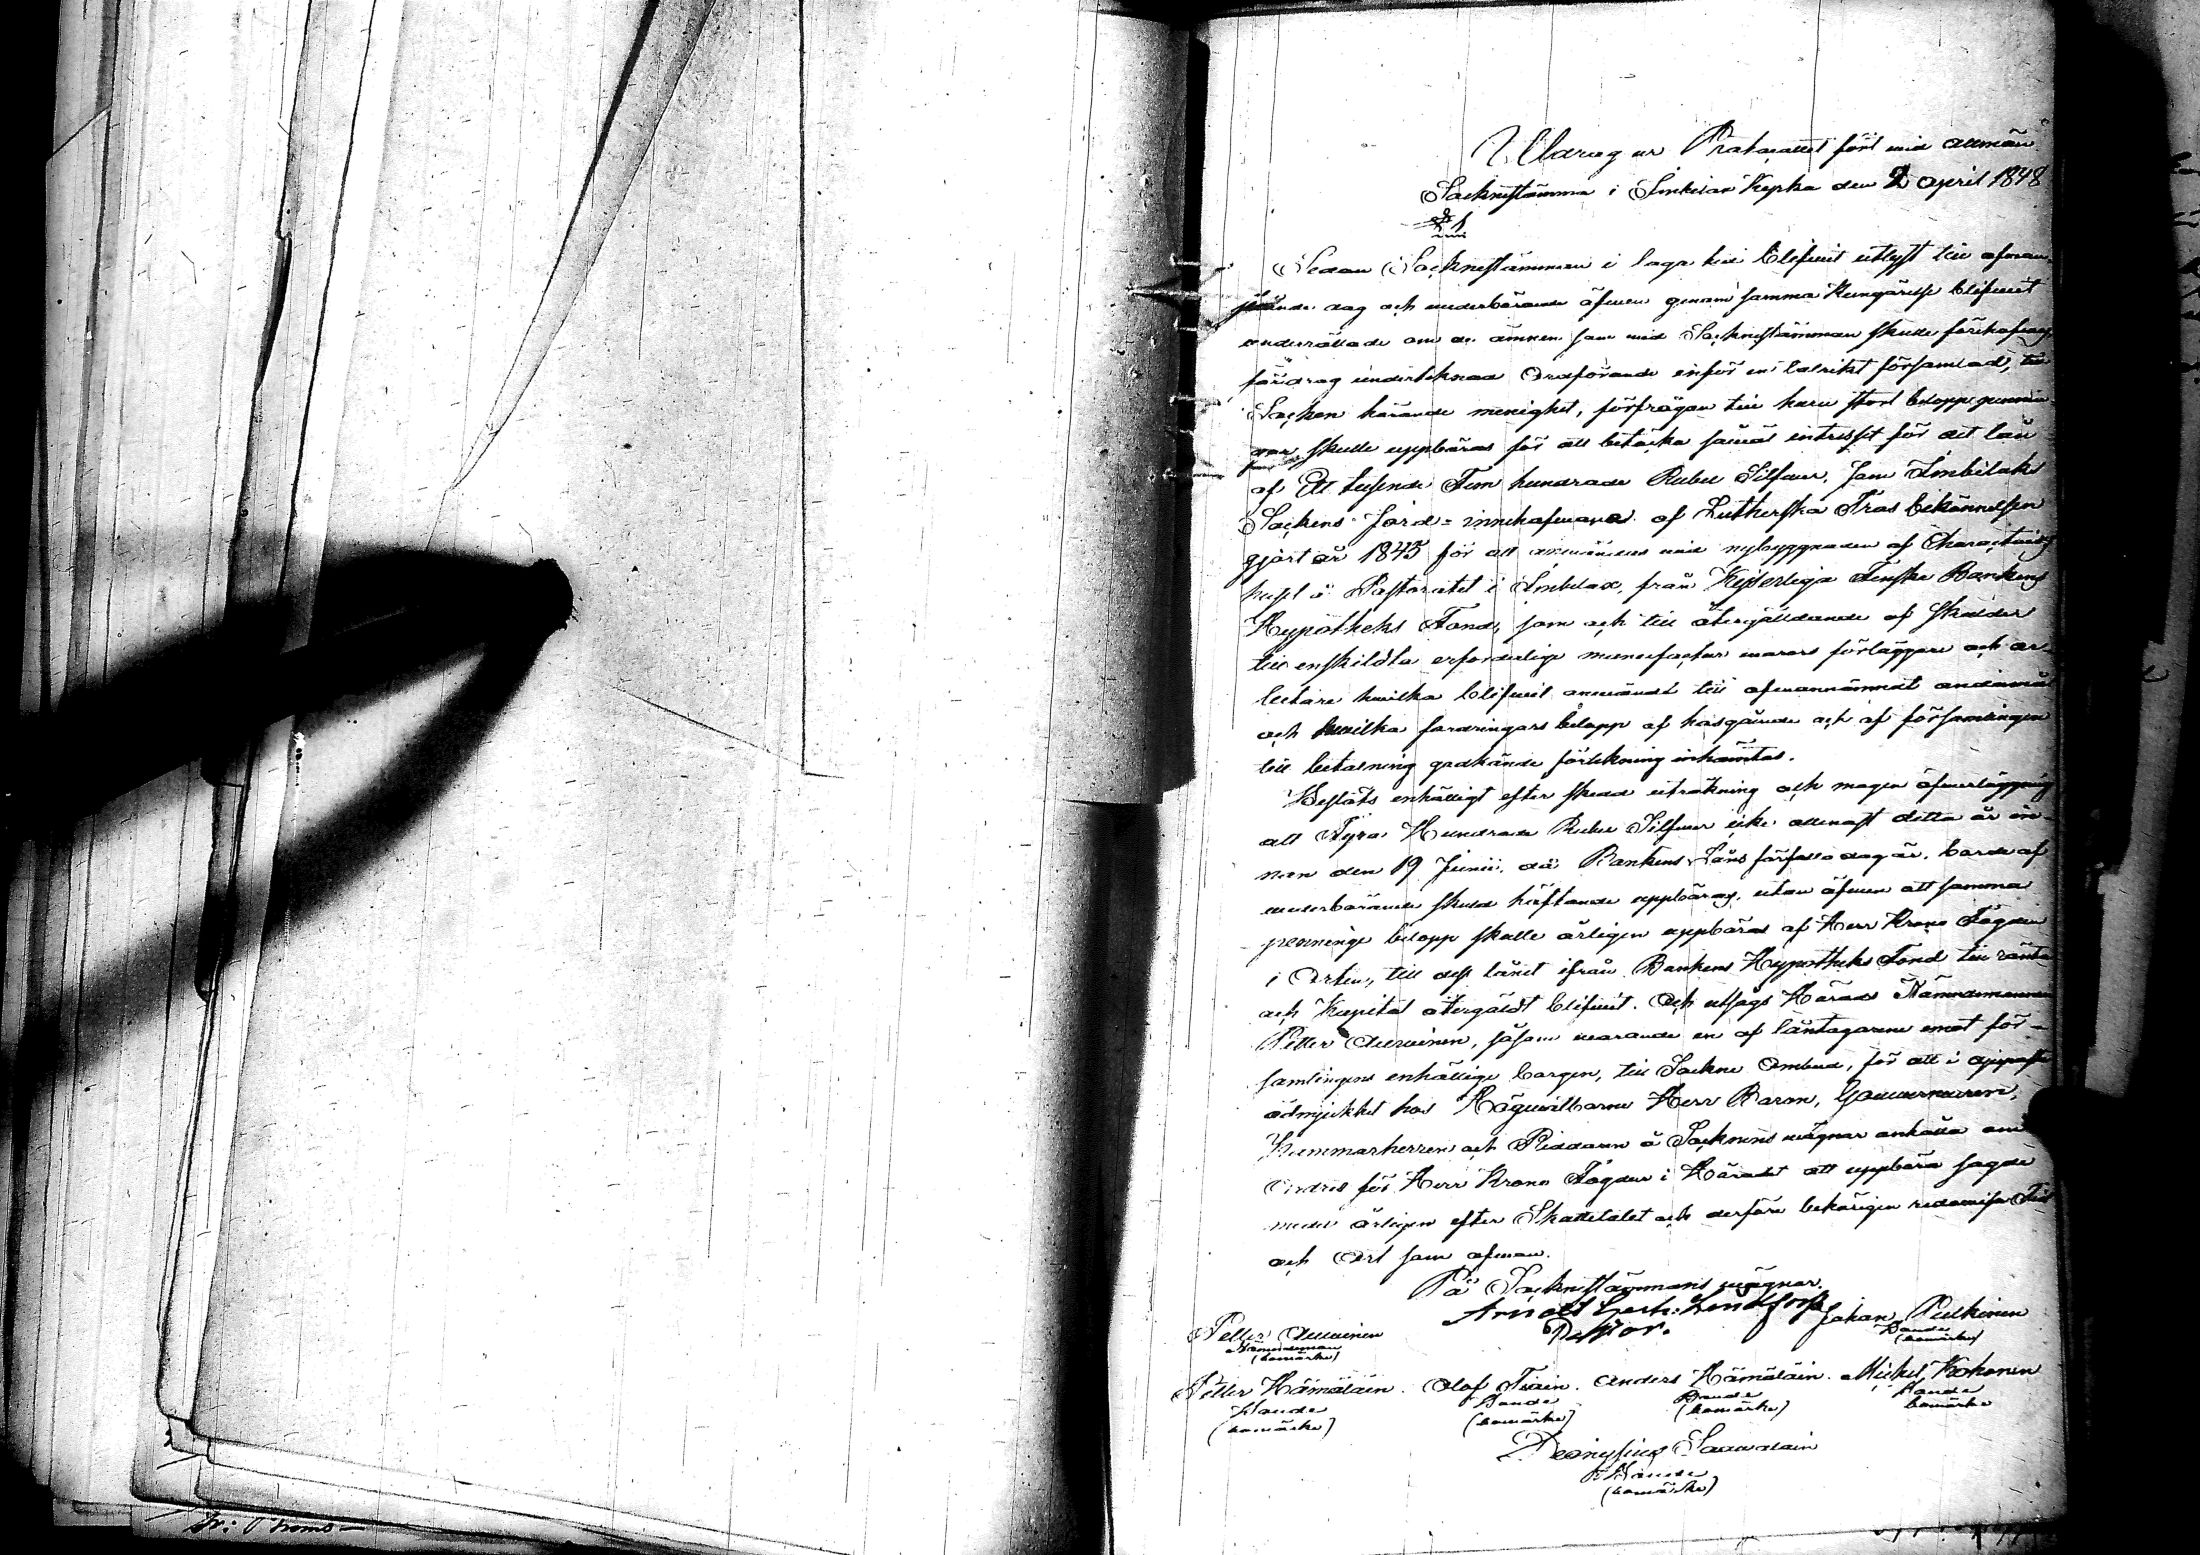 Utdrag ur Protocollet fört vid allmän
Socknestämma i Imbilax Kyrka den 2 April 1848
§ 1
Sedan Socknestämman i laga tid blifvit utlyst till ofvan
skrifne dag och vederbörande äfven genom samma Kungörelse blifvit
underrättade om de ämnen som vid Socknestämman skulle förehafvas,
föredrog undertecknad Ordförande inför en talrikt församlad, till
Socken hörande menighet, förfrågan till huru stort belopp penningar
skulle uppbäras för att betäcka såväl intresset för det lån
af Ett tusende Fem hundrade Rubel Silfver, som Imbilaks
Sockens Jord-innehafvare af Lutherska Tros bekännelsen
gjort år 1845 för att användas vid nybyggnaden af Characters
huset å Pastoratet i Imbilax, från Kejserliga Finska Bankens
Hypotheks Fond, som och till återgäldande af skulder
till enskildta erforderliga manufactur varors förläggare och ar
betare hvilka blifvit använde till ofvannämndt ändamål
och hvilka fordringars belopp af hosgående och af församlingen
till betalning godkände förtekning inhämtas.
Beslöts enhälligt efter skedd uträkning och mogen öfverläggning
att Fyra Hundrade Rubel Silfver icke allenast detta år in-
nan den 19 Junii, då Bankens Låns förfallo dag är, borde af
vederbörande skuld häftande uppbäras, utan äfven att samma
penninge belopp skulle årligen uppbäras af Herr Krono Fogden
i Orten, till dess lånet ifrån Bankens Hypotheks Fond till ränta
och Kapital återgäldt blifvit. Och utsågs Härads Nämndemannen
Petter Auvinen, såsom varande en af låntagarene emot för-
samlingens enhällige borgen, till Sockne Ombud, för att i
ödmjukhet hos Högvälborne Herr Baron, Gouverneuren,
Kammarherren och Riddaren å Socknens vägnar anhålla om
Ordres för Herr Krono Fogden i Häradet att uppbära sagde
medel årligen efter Skattetalet och derföre behörigen redovisa Tid
och Ort som ofvan.
På Socknestämmans vägnar.
Arnold Gerh: Lindforss Johan Pulkinen
Petter Auvinen Pastor. Bonde
Nämndeman (bomärke)
(bomärke)
Petter Hämäläin. Olof Tiain. Anders Hämäläin. Mickel Kokonen
Bonde Bonde Bonde Bonde
(bomärke) (bomärke) (bomärke) bomärke
Dionysius Saarelain
Bonde
(bomärke)